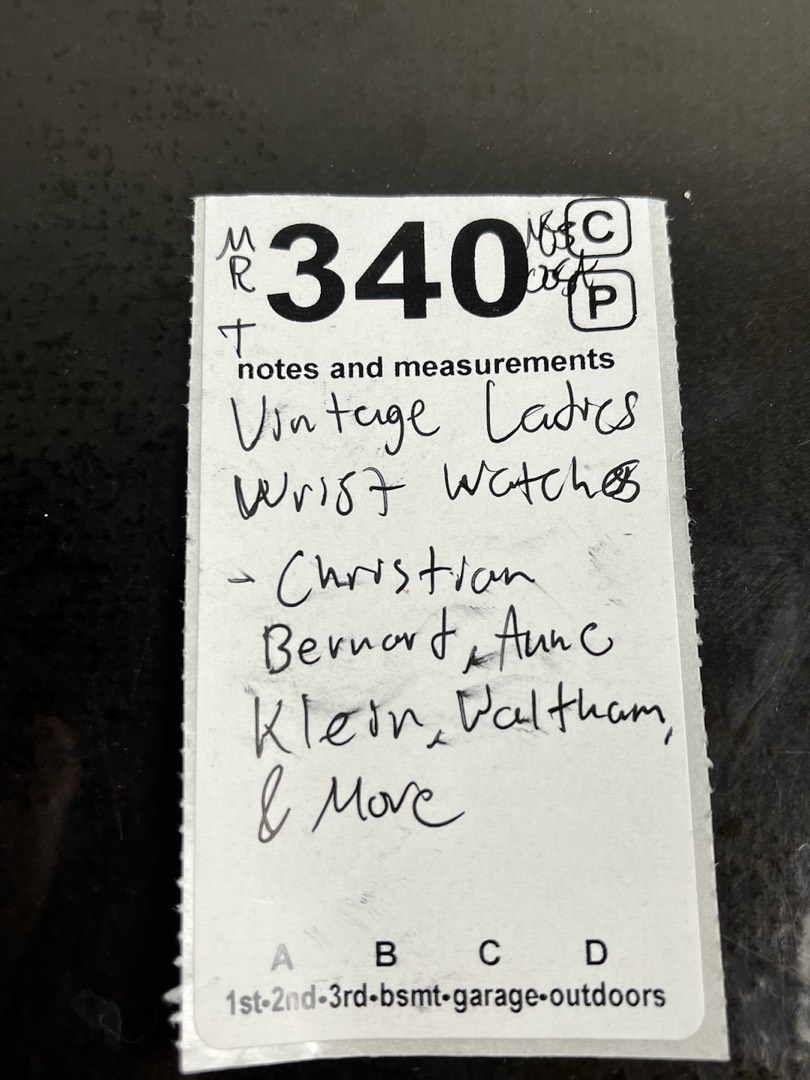 M
R
T
340
C
P
notes and measurements
Vintage Ladies
Wrist Watches
- Christian
Bernard, Anne
Klein, Waltham,
& More
A B C D
1st•2nd•3rd•bsmt•garage•outdoors